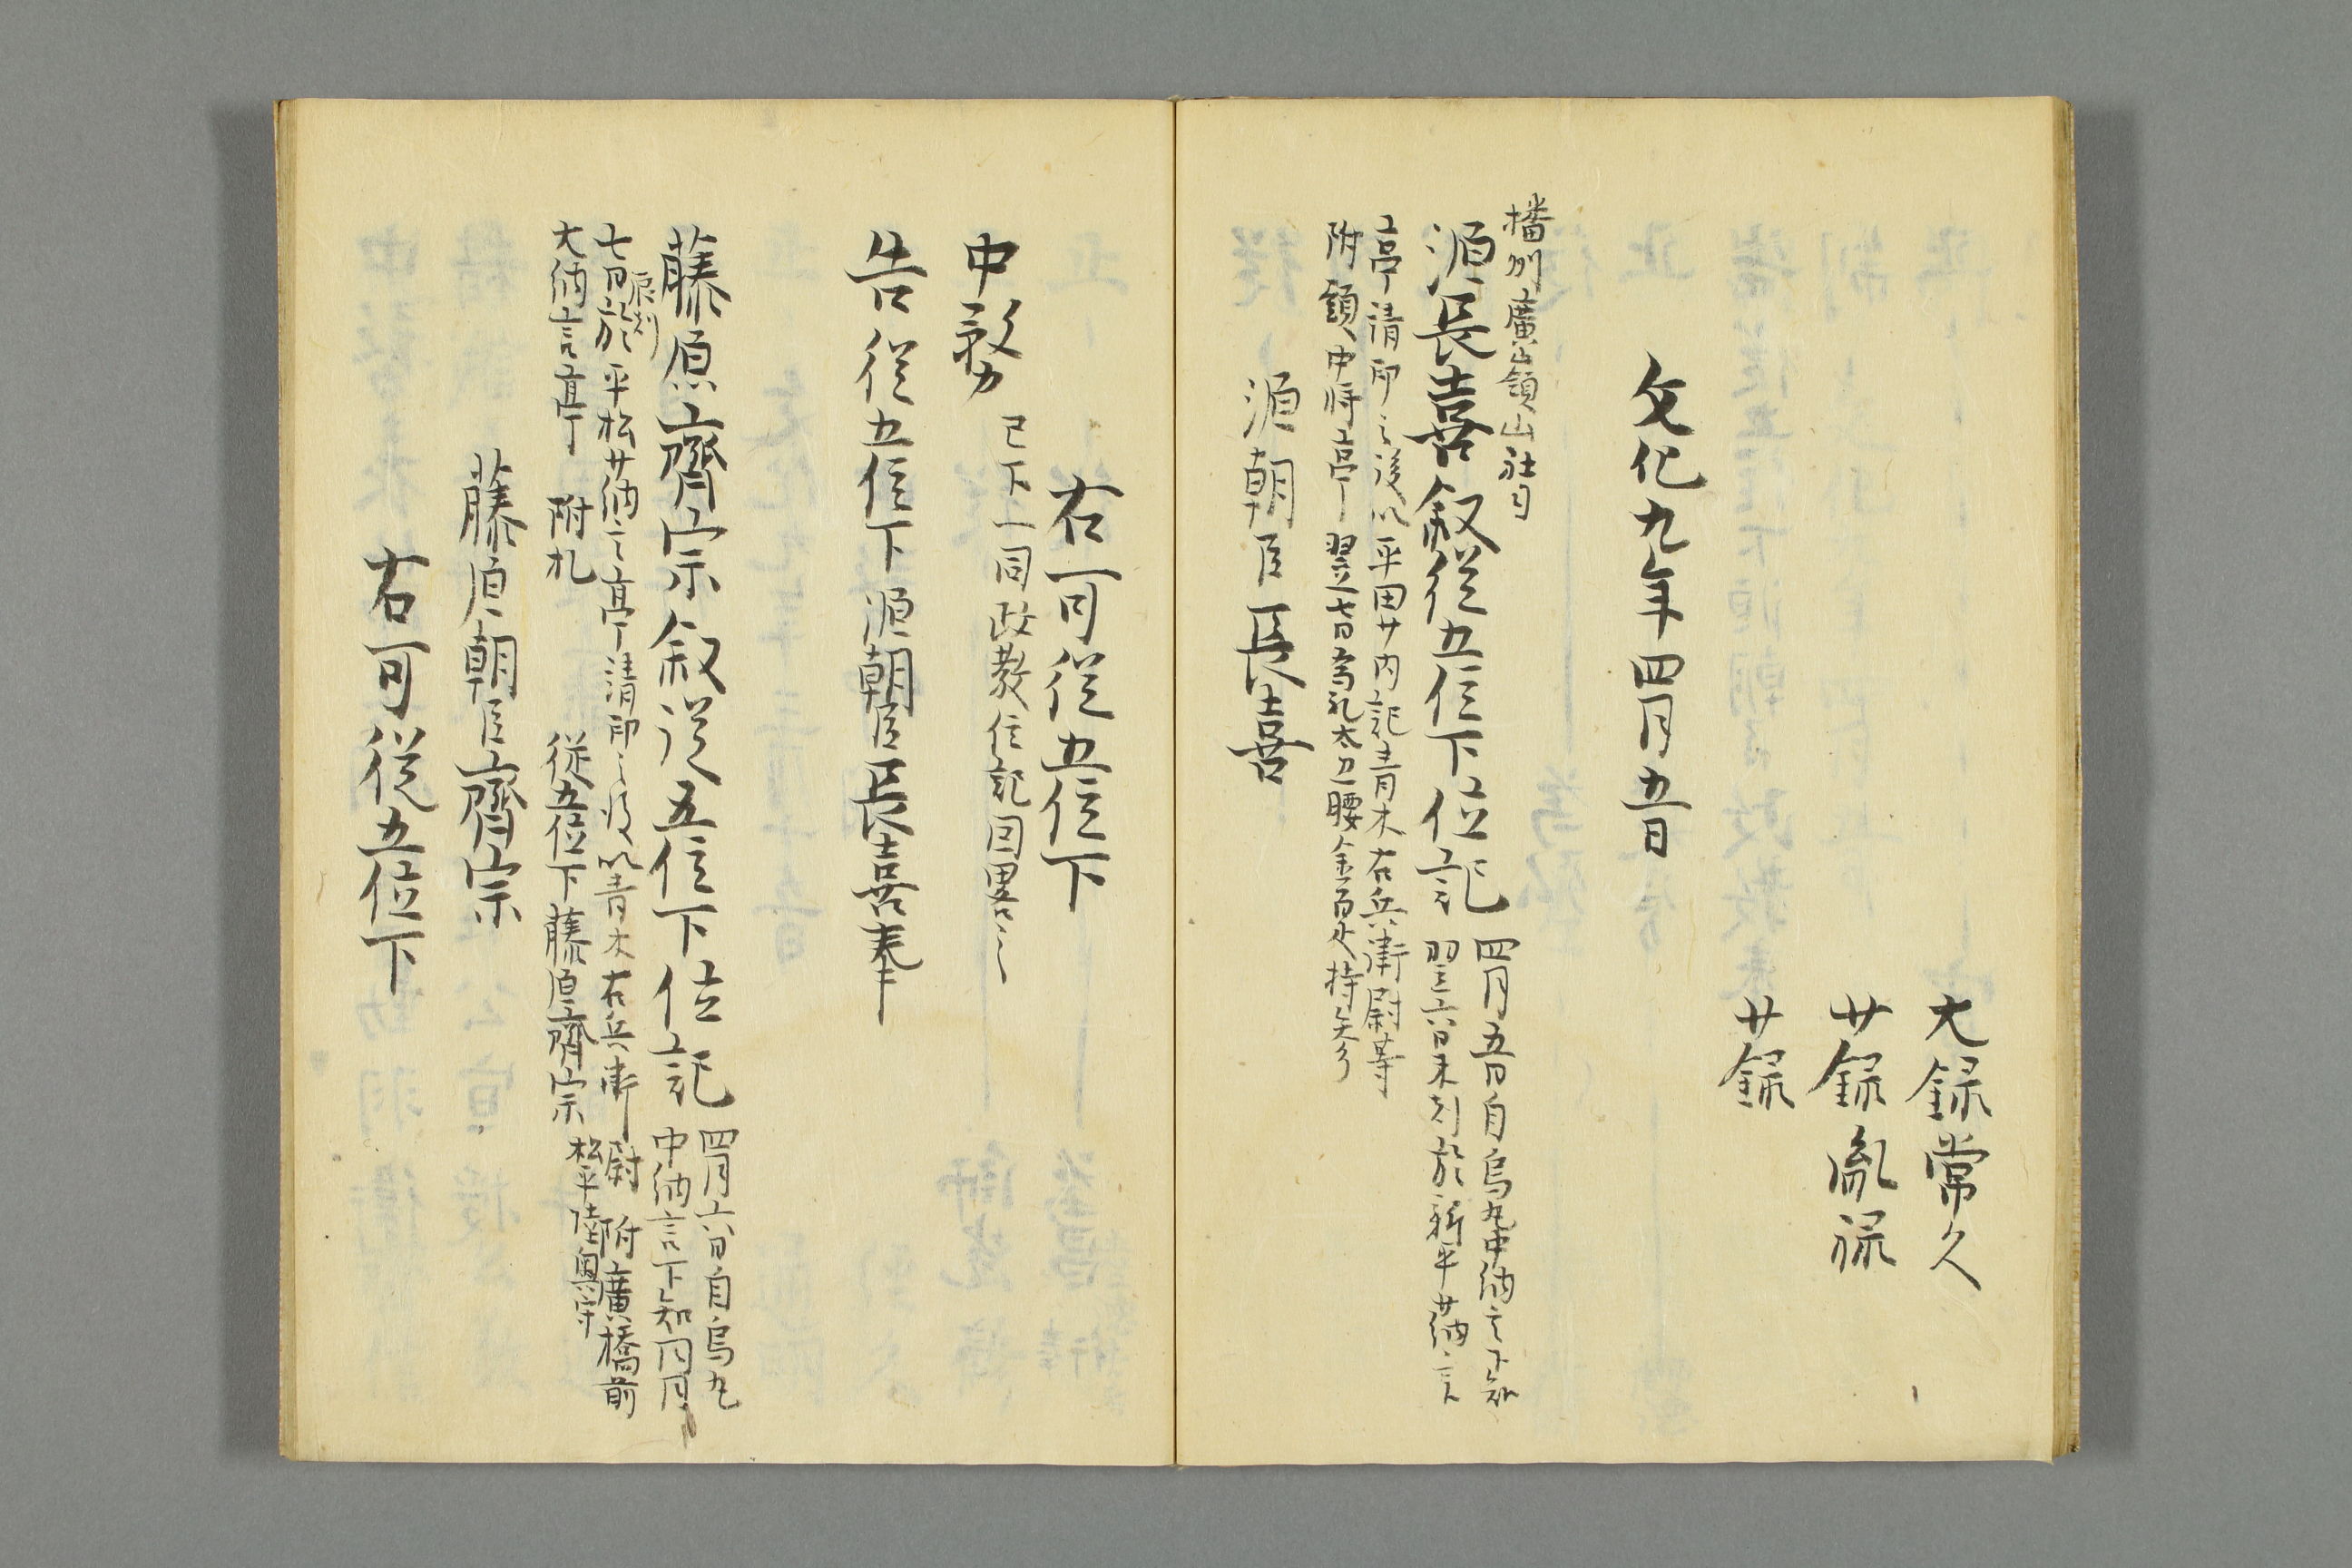 大録常久
少録胤禄
少録
文化九年四月五日
播州廣峯領山社司
源長喜叙従五位下位記
四月五日自烏丸中納言下知
翌六日未刻於新平少納言
亭請印之後以平田少内記青木右兵衛尉等
附頭中将亭翌七日為礼太刀一腰金百疋持参了
源朝臣長喜
右可従五位下
中務
已下一同政教位記因畧之
告従五位下源朝臣長喜奉
藤原齊宗叙従五位下位記
四月六日自烏丸
中納言下知同月
七日辰刻於平松少納言亭請印之後以青木右兵衛尉附廣橋前
大納言亭 附札 従五位下藤原齊宗 松平陸奥守
藤原朝臣齊宗
右可従五位下